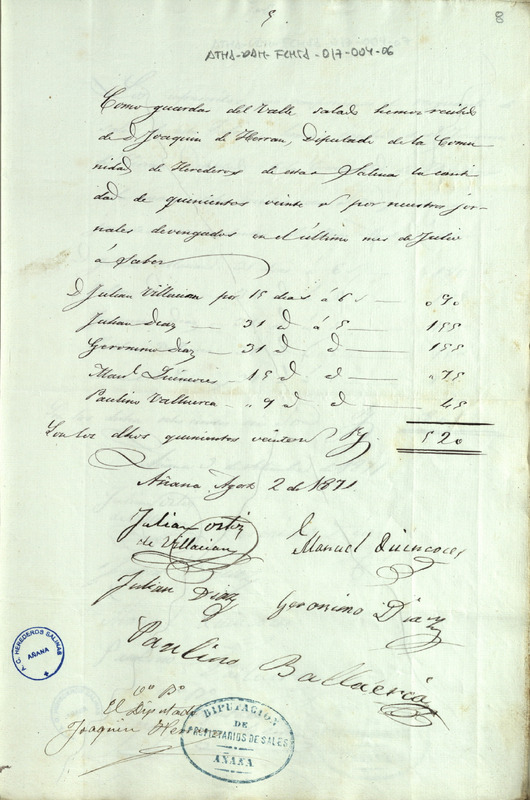 5.
8
ATHA-DAH-FCHTS-017-004-06
Como guardas del Valle salado hemos recibido
de D Joaquin de Herran, Diputado de la Comu
nidad de Herederos de estas Salinas la canti
dad de quinientos veinte rs por nuestros jor-
nales devengados en el último mes de Julio
á saber
D Julian Villacian por 15 dias á 6
Julian Diaz 31 d á 5 155
Geronimo Diaz 31 d d 155
Manl Quincoces 15 d d 75
Paulino Valluerca 9 d d 45
Son los dhos quinientos veinte rs 520
Añana Agosto 2 de 1871
Julian Ortiz
de Villacian
Manuel Quincoces
Julian Diaz
Geronimo Diaz
Paulino Balluerca
Vo Bo
El Diputado
Joaquin Herran
F.C. HEREDEROS SALINAS
AÑANA
DIPUTACION
DE
PROPIETARIOS DE SALES
AÑANA